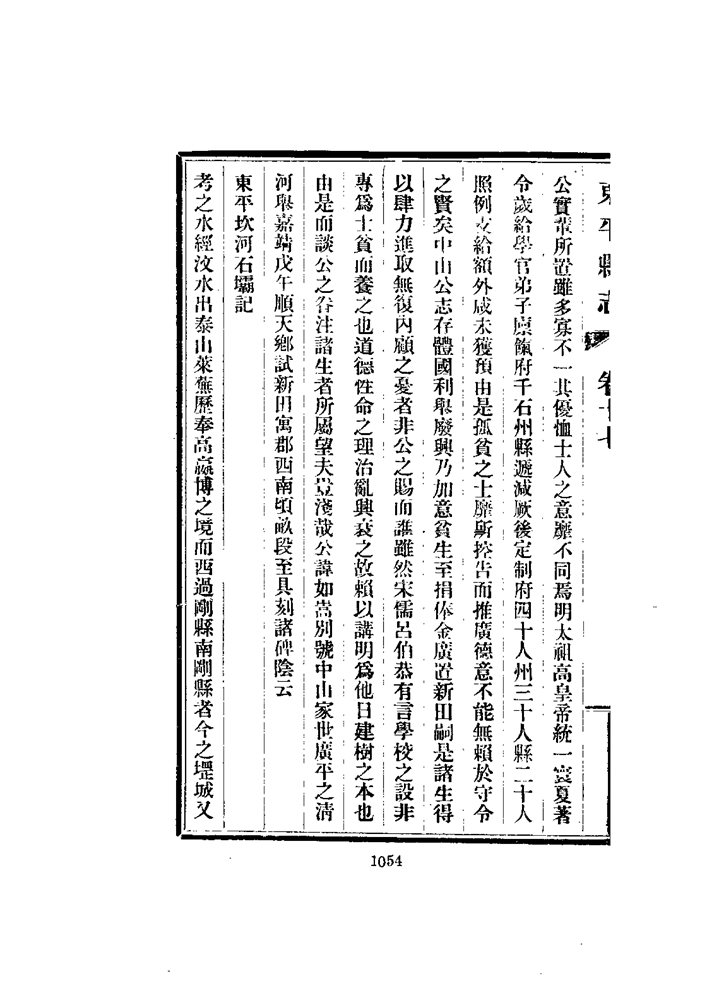 東平縣志 卷十七
公實輩所置雖多寡不一其優恤士人之意靡不同焉明太祖高皇帝統一寰夏著
令歲給學官弟子廩餼府千石州縣遞減厥後定制府四十人州三十人縣二十人
照例支給額外咸未獲預由是孤貧之士靡所控告而推廣德意不能無賴於守令
之賢矣中山公志存體國利舉廢興乃加意貧生至捐俸金廣置新田嗣是諸生得
以肆力進取無復內顧之憂者非公之賜而誰雖然宋儒呂伯恭有言學校之設非
專爲士貧而養之也道德性命之理治亂興衰之故賴以講明爲他日建樹之本也
由是而談公之眷注諸生者所屬望夫豈淺哉公諱如嵩別號中山家世廣平之清
河舉嘉靖戊午順天鄉試新田寓郡西南頃畝段至具刻諸碑陰云
東平坎河石壩記
考之水經汶水出泰山萊蕪歷奉高嬴博之境而西過剛縣南剛縣者今之堽城又
1054